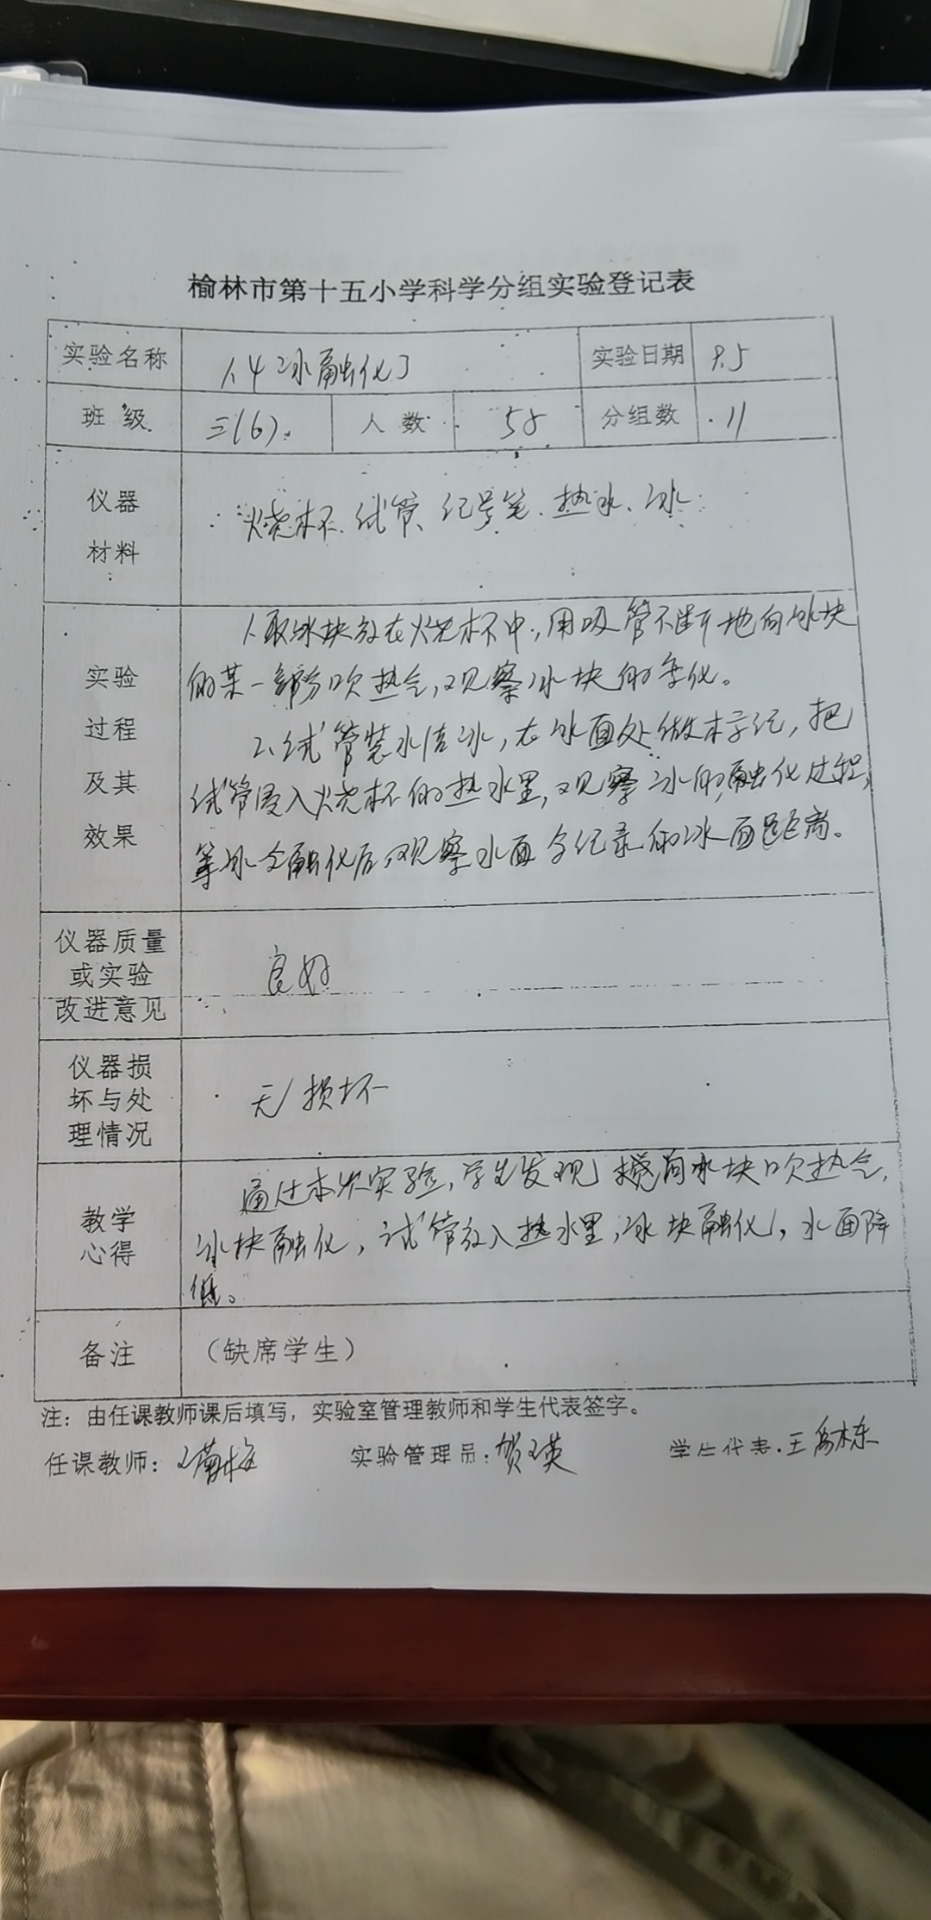 榆林市第十五小学科学分组实验登记表
实验名称 1.4 冰融化了 实验日期 9.5
班级 三(6). 人数 58 分组数 11
仪器
材料
烧杯、试管、记号笔、热水、冰
实验
过程
及其
效果
1、取冰块放在烧杯中,用吸管不断地向冰块
的某一部分吹热气,观察冰块的变化。
2、试管装水结冰,在冰面处做标记,把
试管浸入烧杯的热水里,观察冰的融化过程,
等冰全融化后观察水面与记录的冰面距离。
仪器质量
或实验
改进意见
良好
仪器损
坏与处
理情况
无损坏
教学
心得
通过本次实验,学生发现向冰块吹热气,
冰块融化,试管放入热水里,冰块融化,水面降
低。
备注 (缺席学生)
注:由任课教师课后填写,实验室管理教师和学生代表签字。
任课教师: 实验管理员: 学生代表: